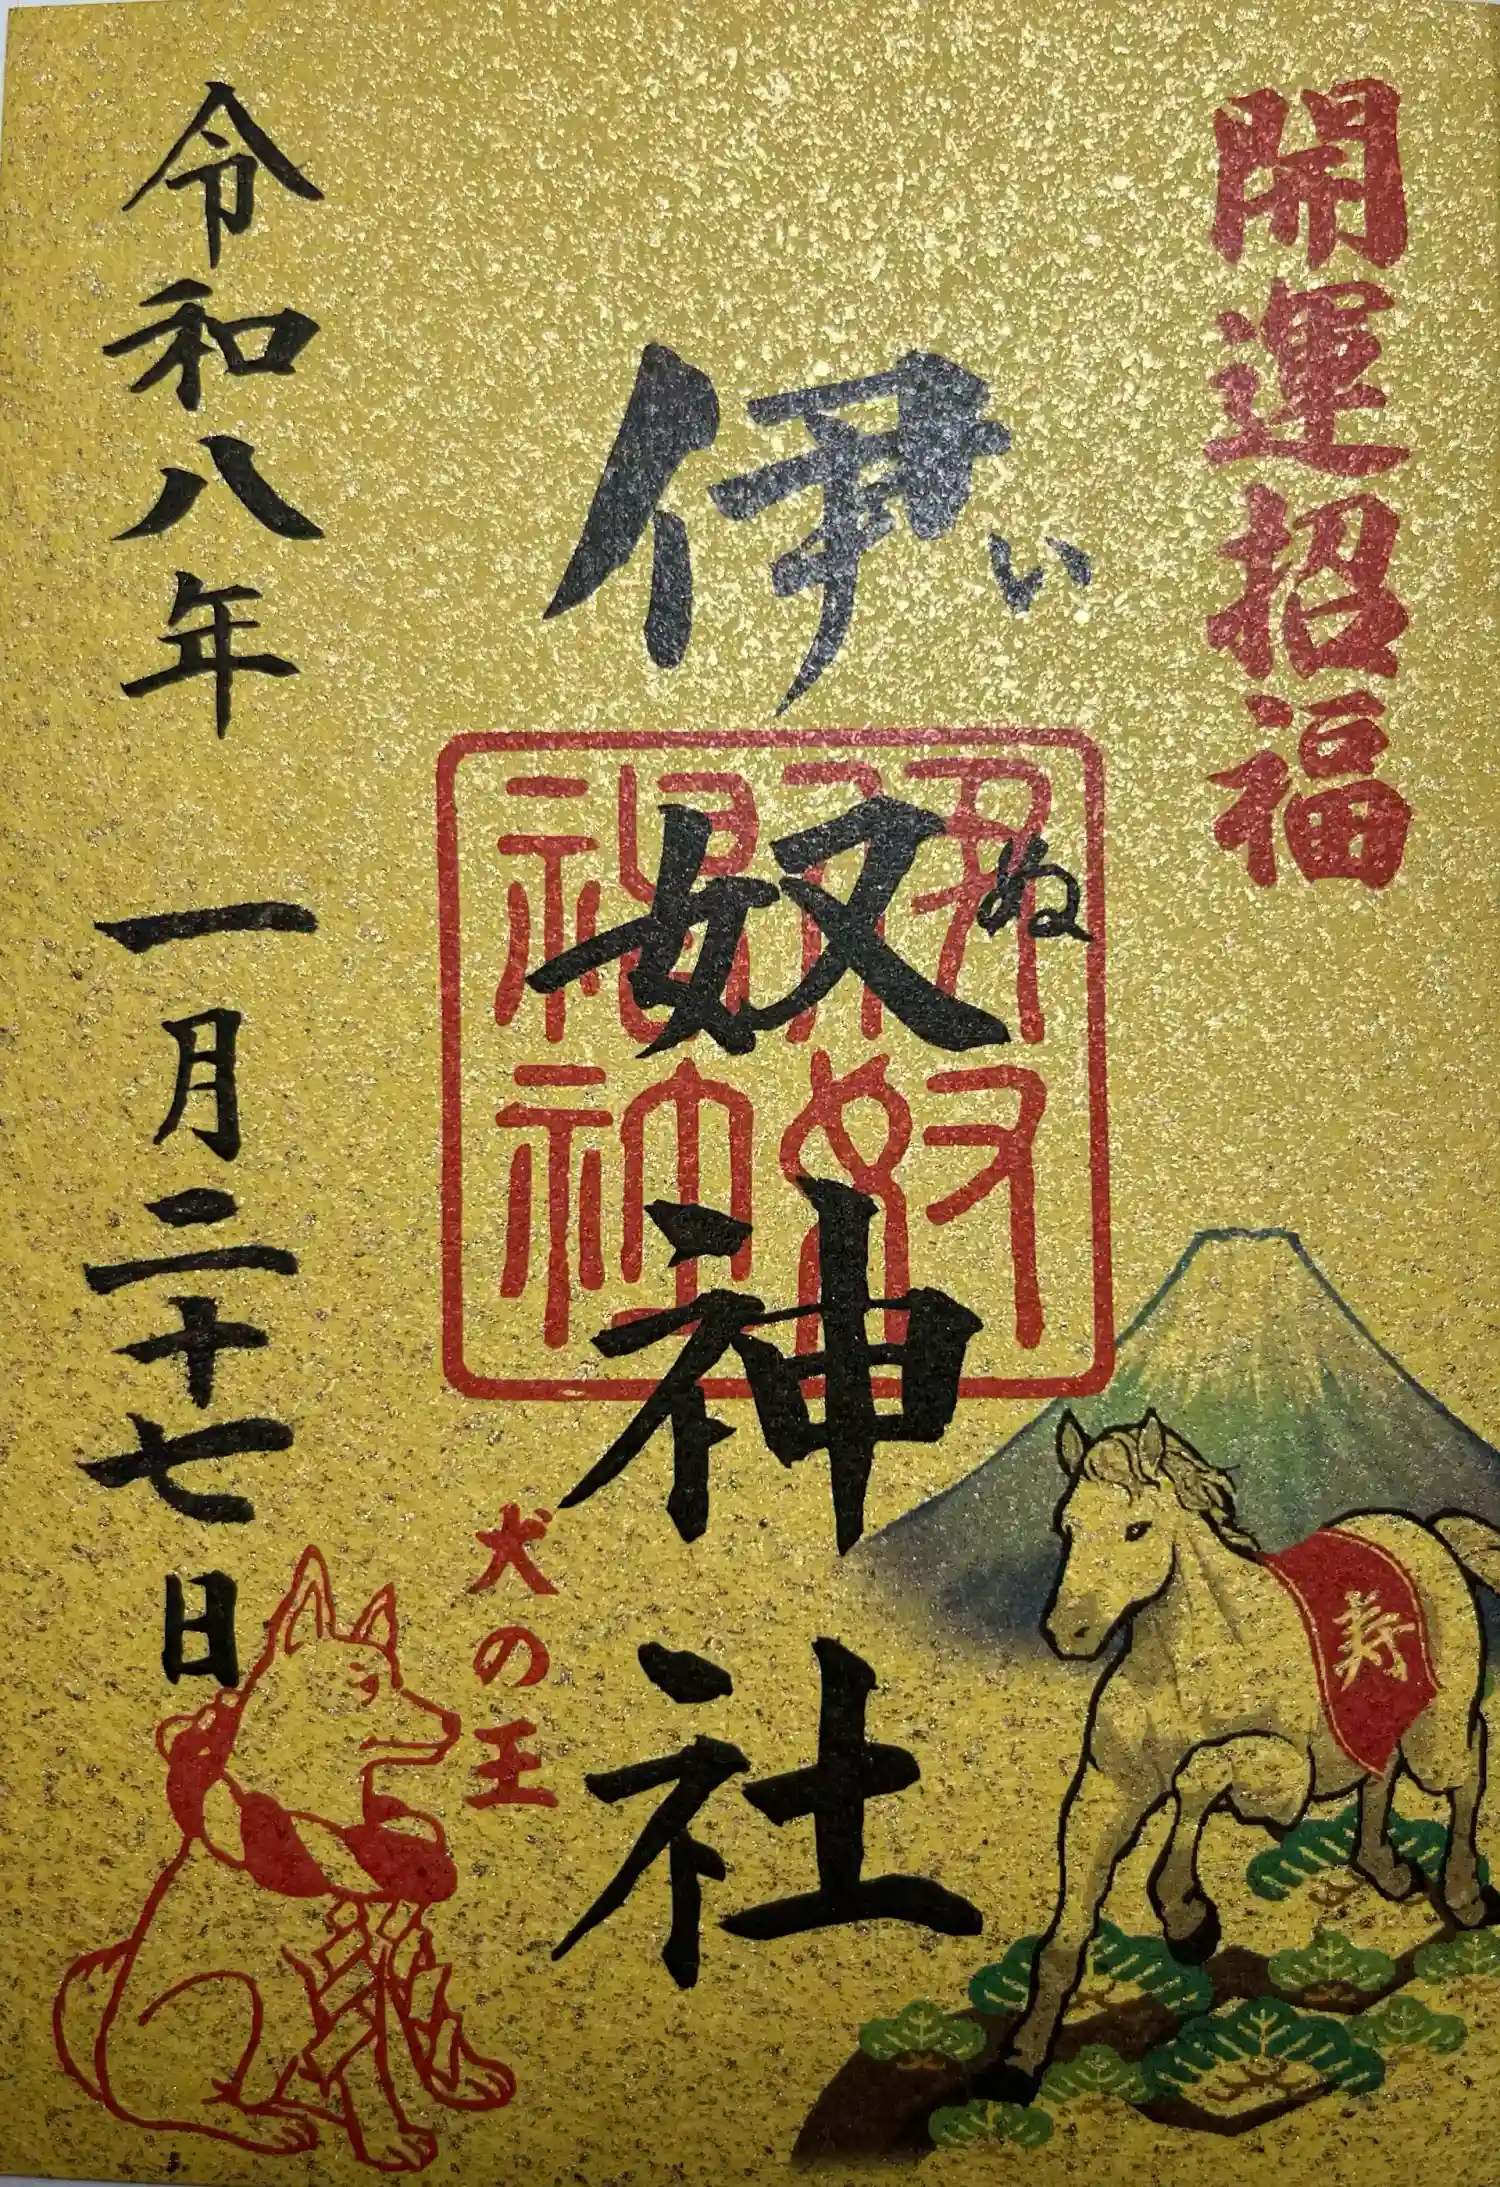 開運招福
伊奴神社
い
ぬ
伊奴
神社
寿
犬の王
令和八年 一月二十七日